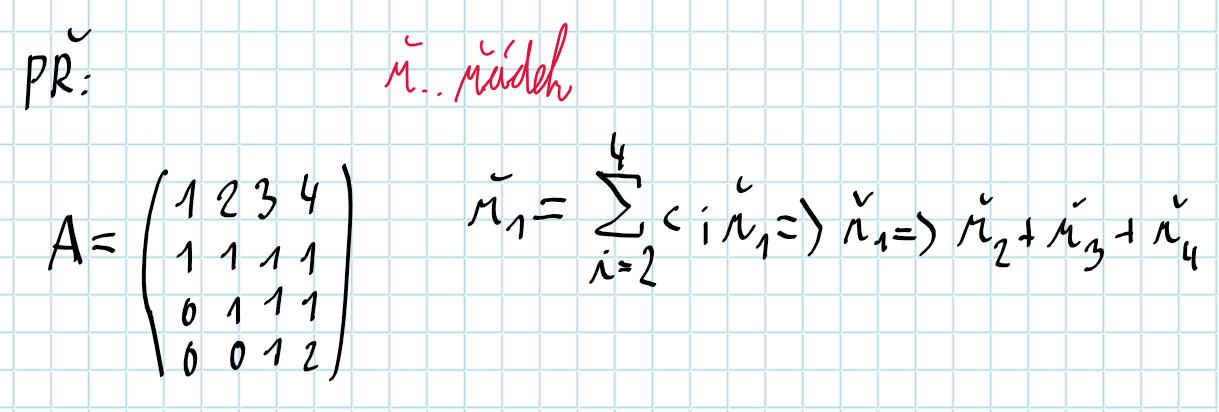 PŘ:
ř.. řádek
A = (1 2 3 4
1 1 1 1
0 1 1 1
0 0 1 2)
ř₁ = ∑_{i=2}^{4} c i ř₁ => ř₁ => ř₂ + ř₃ + ř₄